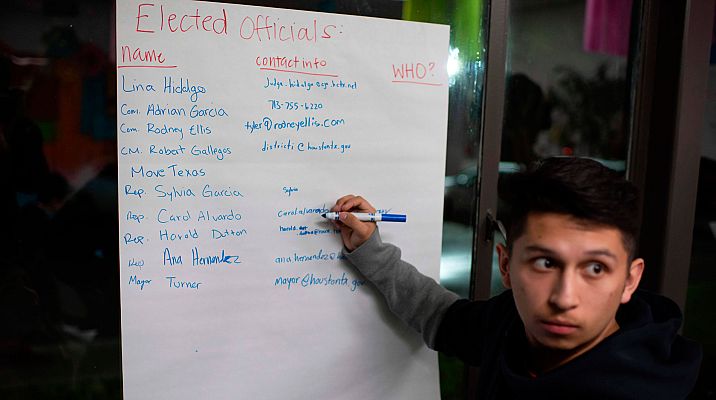 Elected Officials:
name contact info WHO?
Lina Hidalgo
Com. Adrian Garcia 713-755-6220
Com. Rodney Ellis tyler@rodneyellis.com
CM. Robert Gallegos districti@houstontx.gov
Move Texas
Rep. Sylvia Garcia Sylvia
Rep. Carol Alvardo
Rep. Harold Dutton
Rep Ana Hernandez
Mayor Turner mayor@houstontx.gov